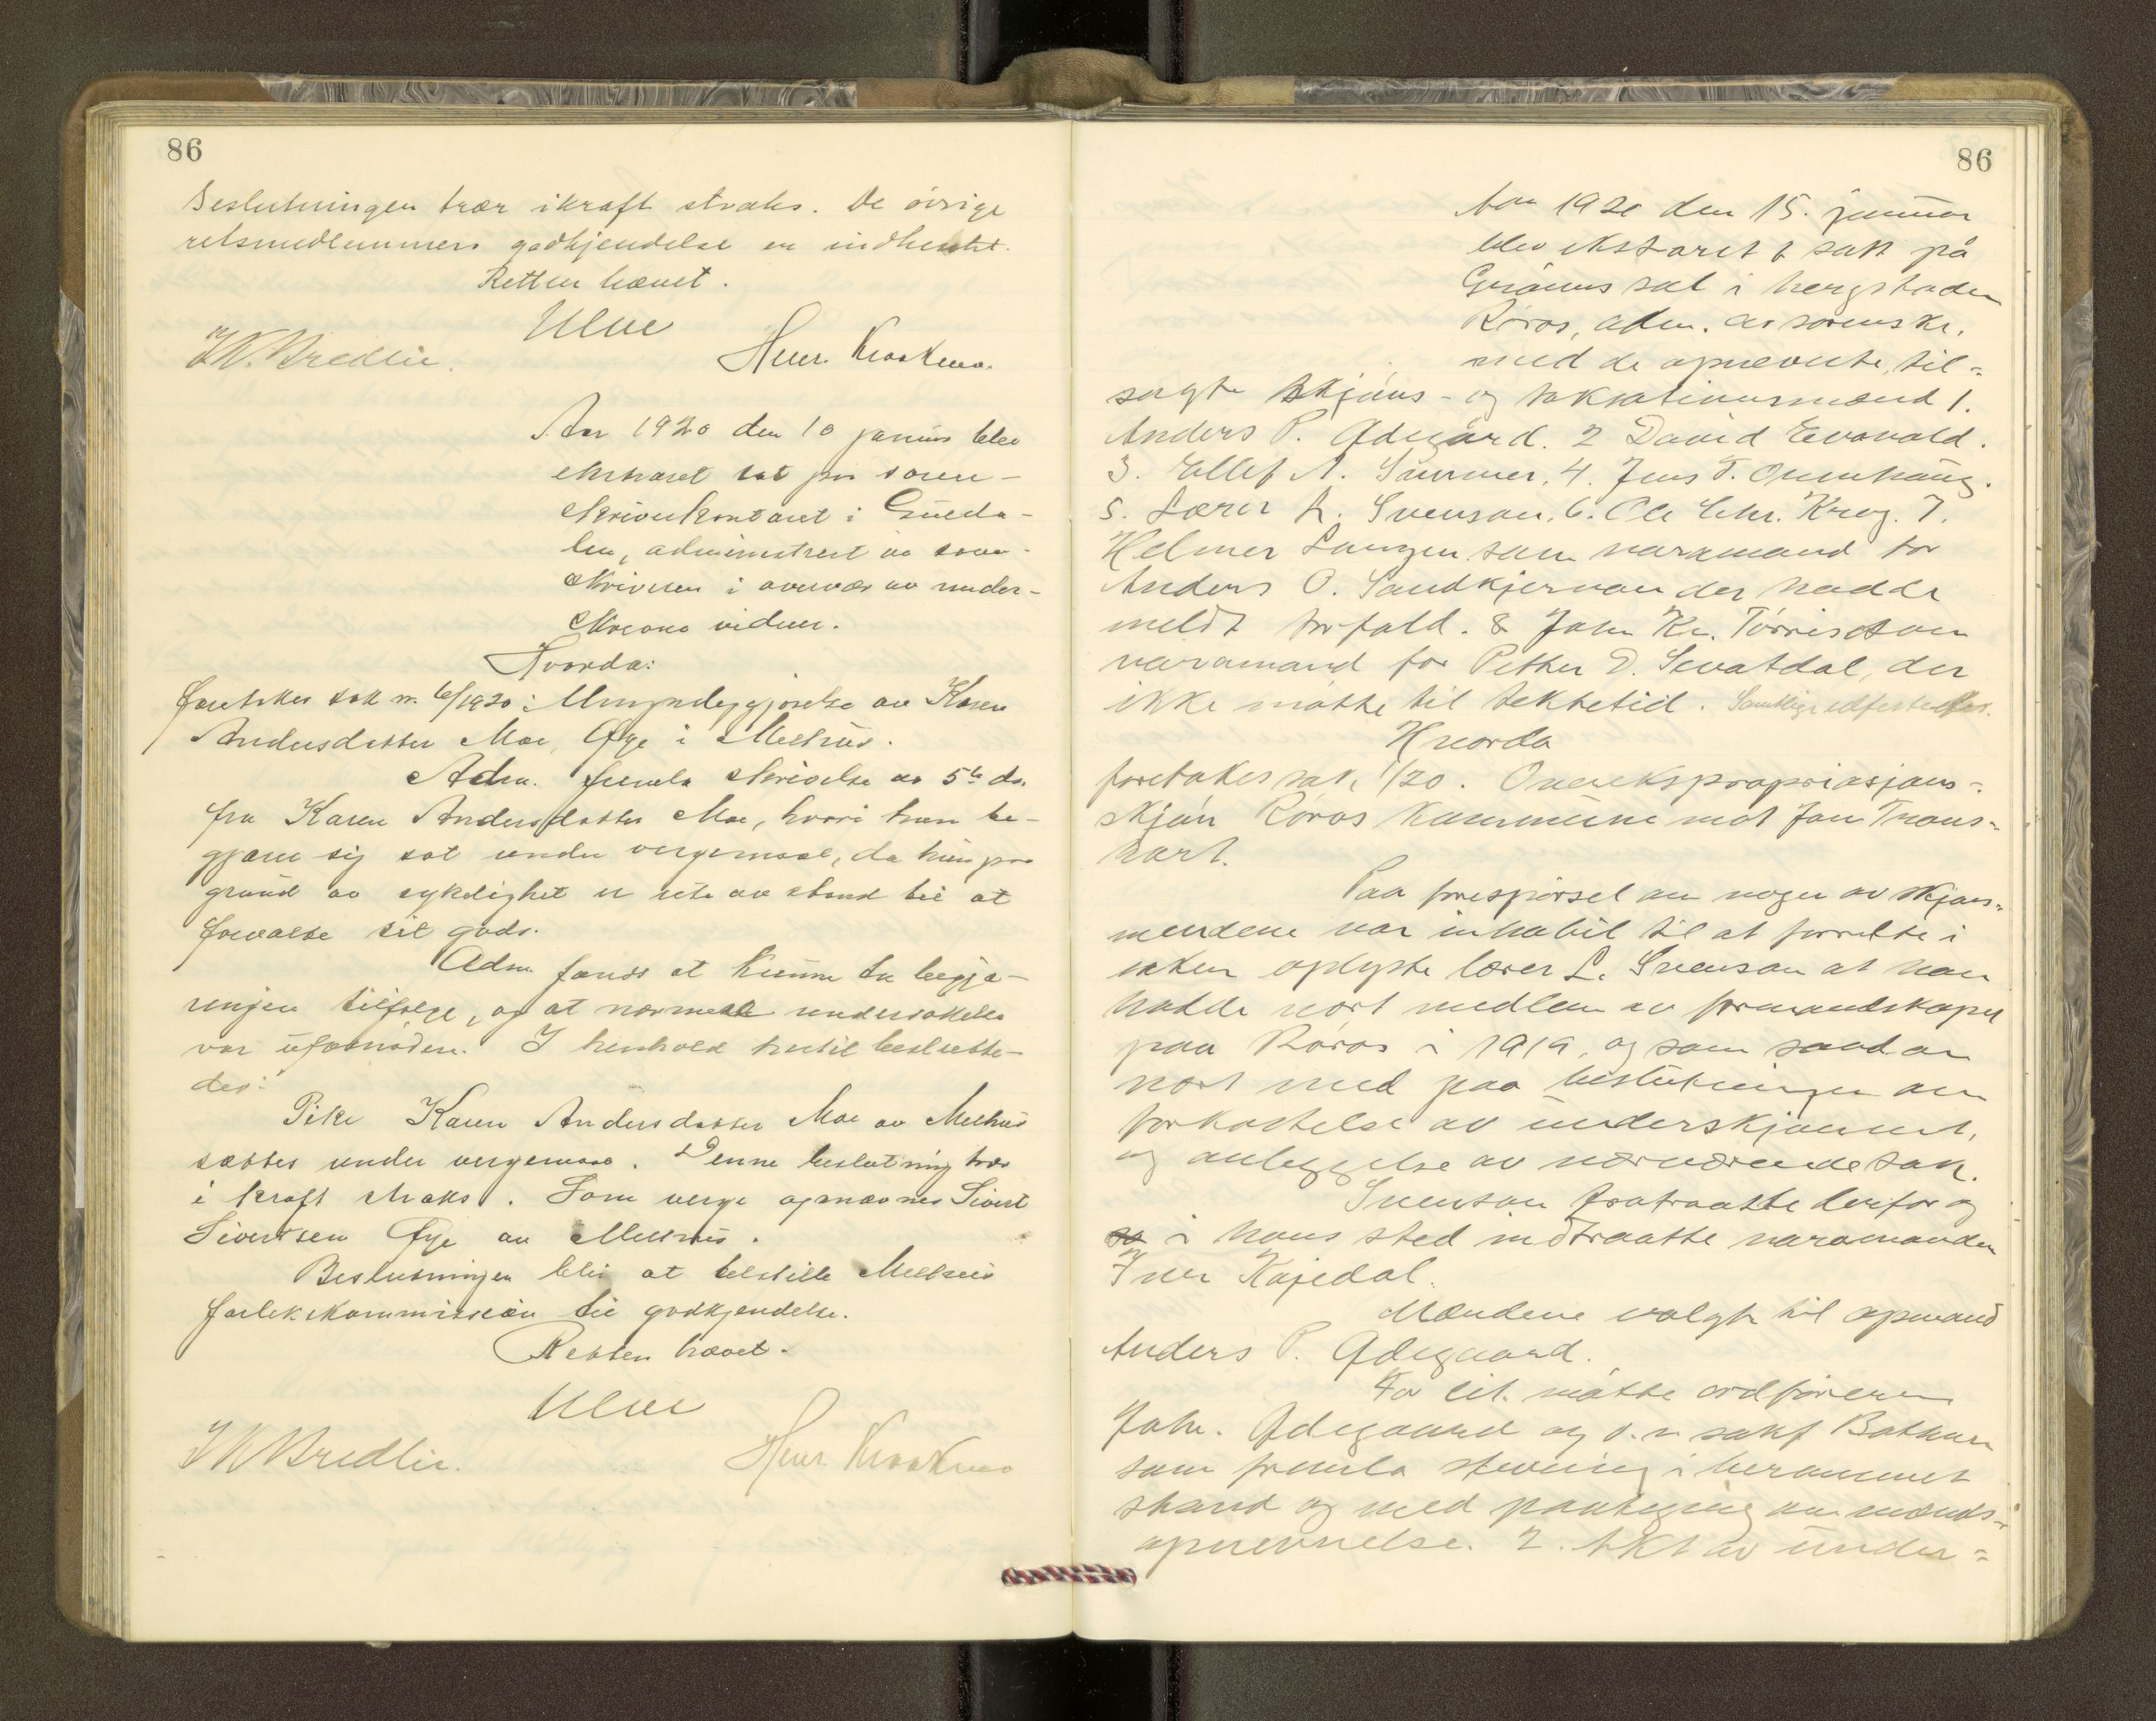 86
Beslutningen trær ikraft straks. De øvrige
retsmedlemmers godkjendelse er indhentet.
Retten hævet.
Ulve
J K. Bredlie. Henr. Kraakmo.
Aar 1920 den 10 januar blev
ekstraret sat paa soren-
skriverkontoret i Guldal-
len, administrert av soren-
skriveren i overvær av under-
skrevne vidner.
Hvorda:
foretokes sak nr. 6/1920: Umyndiggjørelse av Karen
Andersdatter Moe, Øye i Melhus.
Adm. fremla skrivelse av 5te ds.
fra Karen Andersdatter Moe, hvori hun be-
gjærer sig sat under vergemaal, da hun paa
grund av sykelighet er ute av stand til at
forvalte sit gods.
Adm. fandt at kunne ta begjæ-
ringen tilfølge, og at nærmere undersøkelse
var ufornøden. I henhold hertil beslutte-
des:
Pike Karen Andersdatter Moe av Melhus
sættes under vergemaal. Denne beslutning trær
i kraft straks. Som verge opnævnes Sivert
Sivertsen Øye av Melhus.
Beslutningen blir at tilstille Melhus
forlikskommission til godkjendelse.
Retten hævet.
Ulve
J K Bredlie. Henr. Kraakmo
86
Aar 1920 den 15. januar
blev ekstraret sat på
Grünns sal i bergstaden
Røros, adm. av sorenskr.
med de opnevnte, til-
sagte skjøns- og taksationsmænd 1.
Anders P. Ødegård. 2 David Evavold.
3. Ellef A. Sømmer, 4. Jens T.
5. Lærer L. Svenson, 6. Ole Chr. Krog. 7.
Helmer Langen som varamand for
Anders O. Sandkjernan der hadde
meldt forfald. 8 John Kr. Tørrisson
varamand for Petter D. Sevatdal, der
ikke møtte til tektetid. Samtlige edfæstedes.
Hvorda
foretokes sak 1/20. Overekspropriasjons-
skjøn Røros kommune mot Jon Trons-
hart.
Paa forespørsel om nogen av skjøns-
mendene var inhabil til at forrette i
saken oplyste lærer L. Svenson at han
hadde vært medlem av formandskapet
paa Røros i 1919, og som saadan
vært med paa beslutningen om
forkastelse av underskjønnet,
og anleggelse av nærværende sak.
Svenson fratraatte derfor og
i hans sted indtraatte varamanden
Iver Kojedal.
Mændene valgte til opmand
Anders P. Ødegaard.
For cit. møtte ordføreren
John. Ødegaard og o.r. sakf Bakken
som fremla stevning i berammet
stand og med paategning om mænds-
opnevnelse. 2. Akt av under-